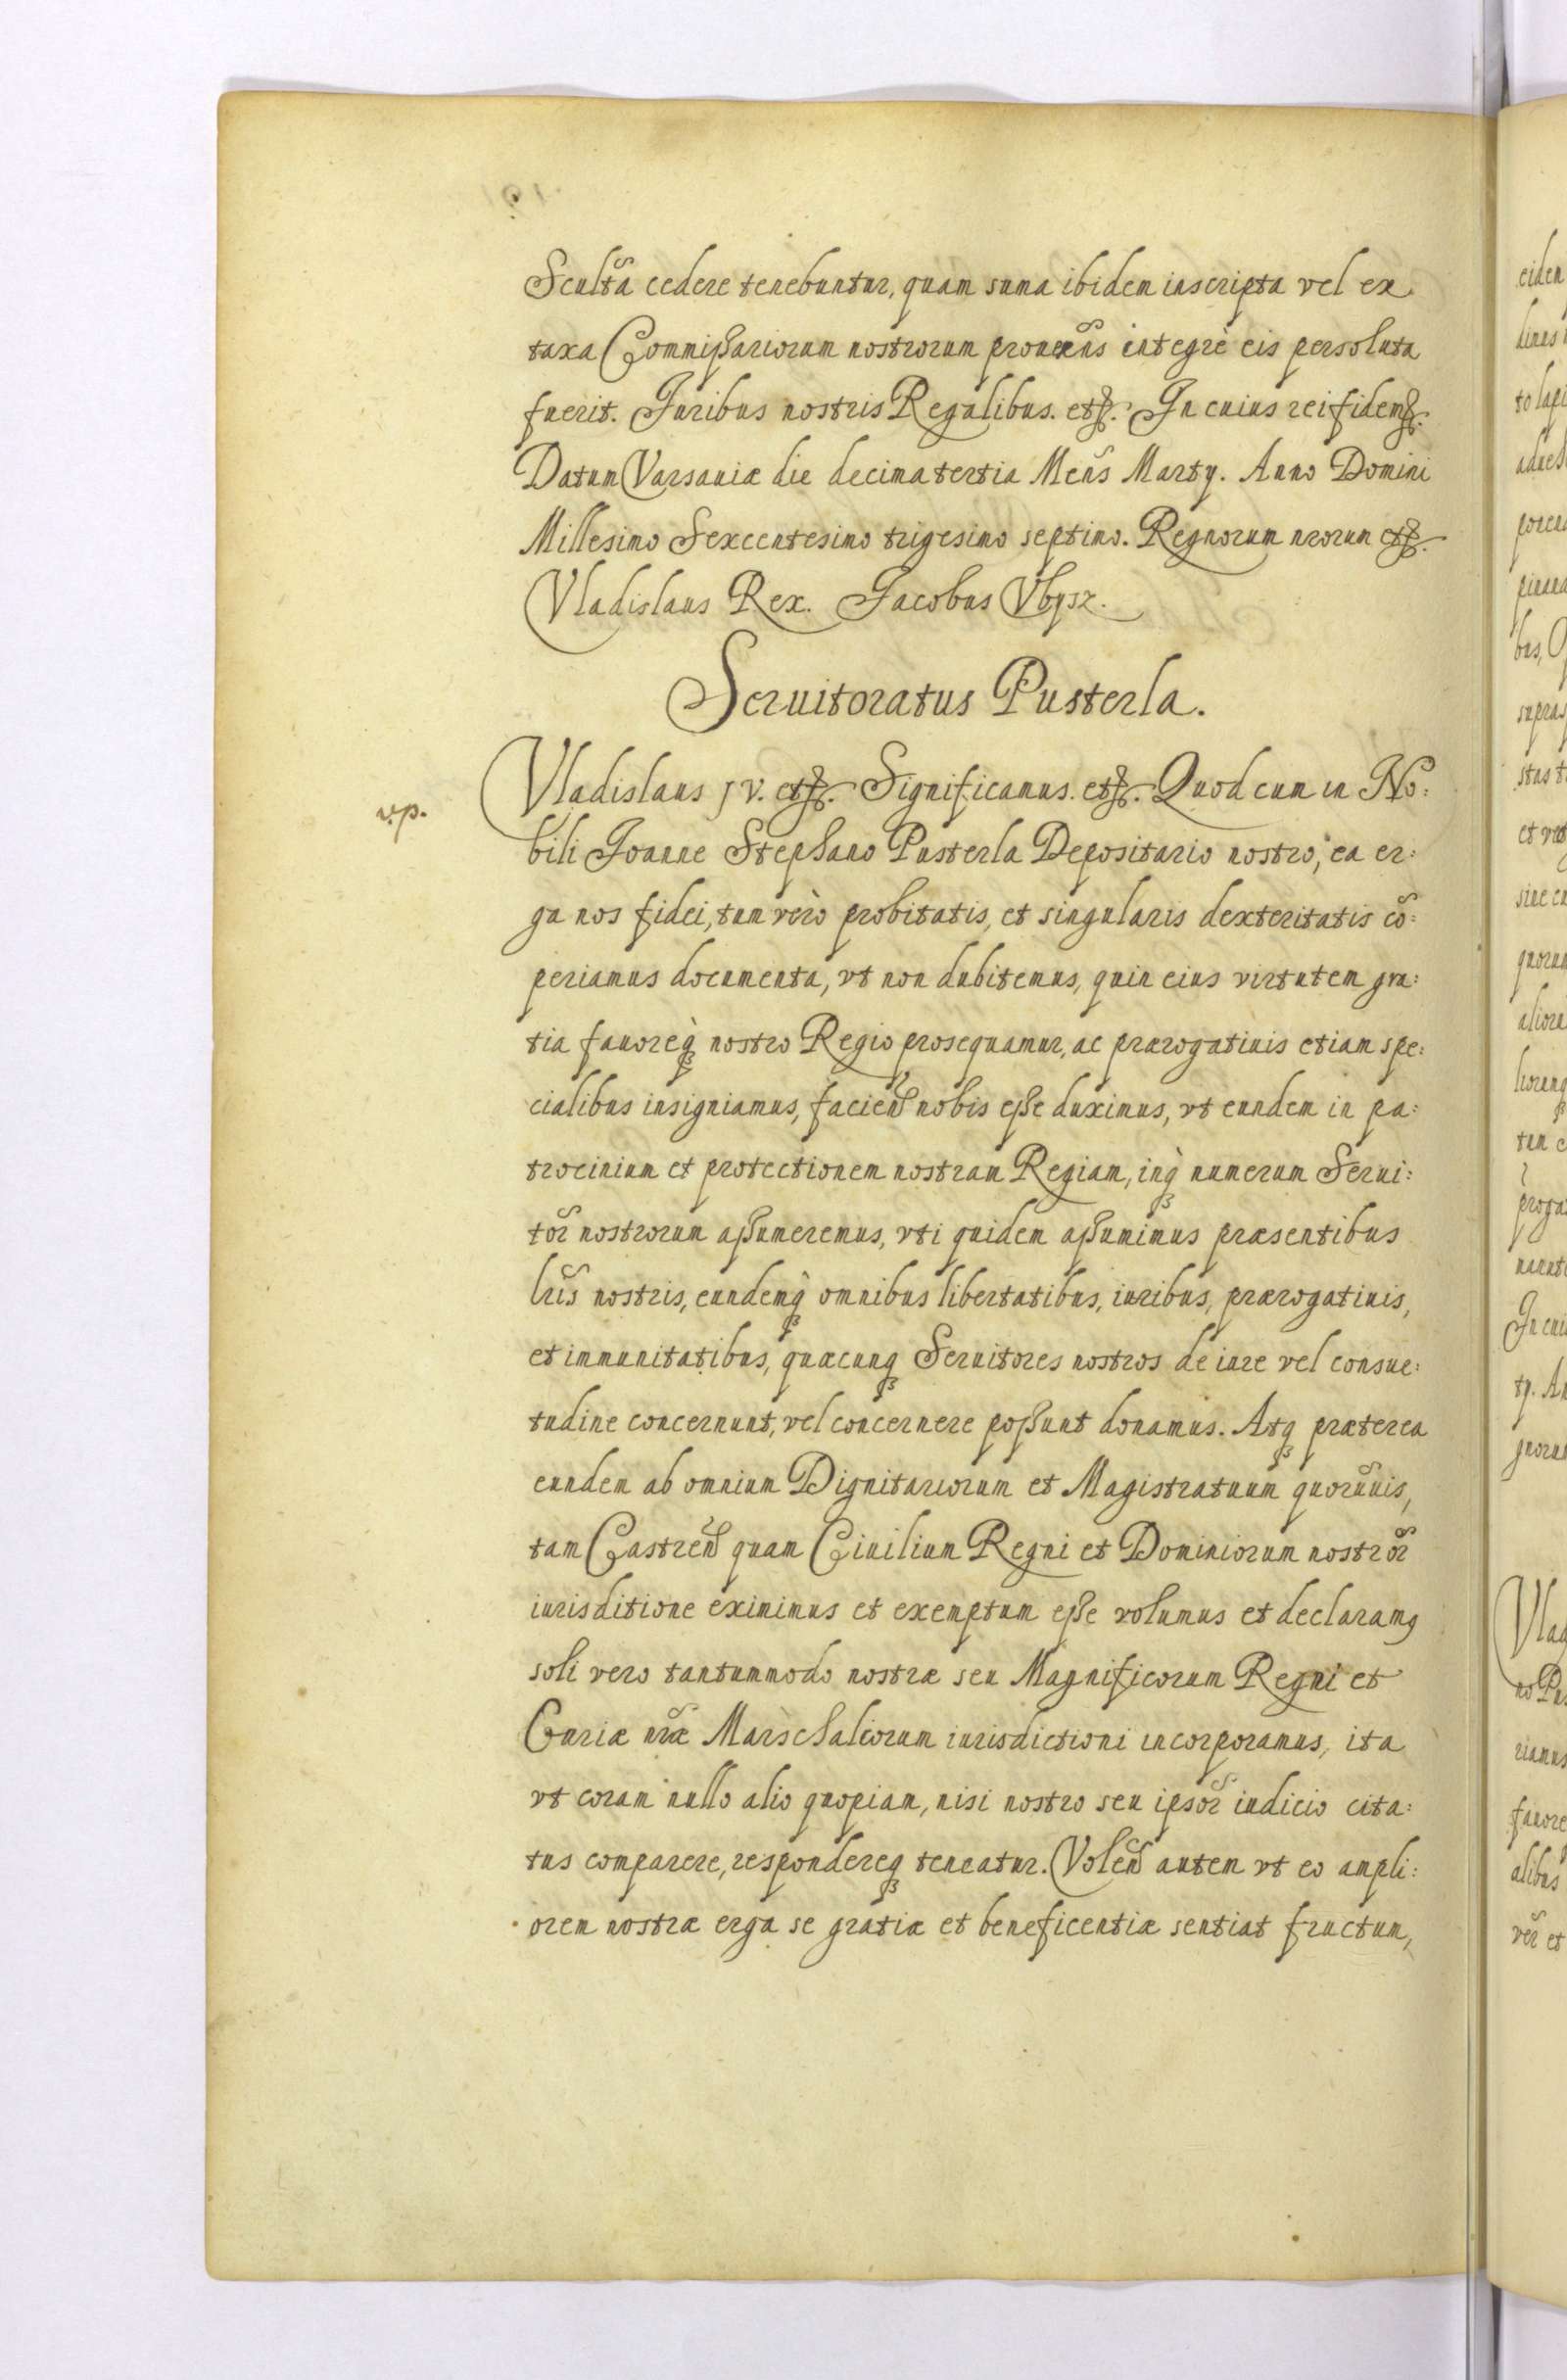 Scultã cedere tenebuntur, quam suma ibidem inscripta vel ex
taxa Commissariorum nostrorum proueñs integrè eis persoluta
fuerit. Juribus nostris Regalibus. etc. In cuius rei fidem etc.
Datum Varsauiæ die decima tertia Meñs Martÿ. Anno Domini
Millesimo Sexcentesimo trigesimo septimo. Regnorum nrorum etc.
Vladislaus Rex. Jacobus Vbysz.
Seruitoratus Pusterla.
v.p.
Vladislaus IV. etc. Significamus. etc. Quod cum in No:
bili Joanne Stephano Pusterla Depositario nostro, ea er:
ga nos fidei, tum verò probitatis, et singularis dexteritatis cõ:
periamus documenta, vt non dubitemus, quin eius virtutem gra:
tia fauoreq̀ꝫ nostro Regio prosequamur, ac prærogatiuis etiam spe:
cialibus insigniamus, faciend̃ nobis esse duximus, vt eundem in pa:
trocinium et protectionem nostram Regiam, inq̀ꝫ numerum Serui:
tor̃ nostrorum assumeremus, vti quidem assumimus præsentibus
lr̃is nostris, eundemq̀ꝫ omnibus libertatibus, iuribus, prærogatiuis,
et immunitatibus, quæcunqꝫ Seruitores nostros de iure vel consue:
tudine concernunt, vel concernere possunt donamus. Atqꝫ præterea
eundem ab omnium Dignitariorum et Magistratuum quorũuis,
tam Castreñ quam Ciuilium Regni et Dominiorum nostror̃
iurisditione eximimus et exemptum esse volumus et declaramꝯ
soli vero tantummodo nostræ seu Magnificorum Regni et
Curiæ nr̃æ Marschalcorum iurisdictioni incorporamus, ita
vt coram nullo alio quopiam, nisi nostro seu ipsor̃ iudicio cita:
tus comparere, respondereqꝫ teneatur. Voleñ autem vt eo ampli:
orem nostræ erga se gratiæ et beneficentiæ sentiat fructum,